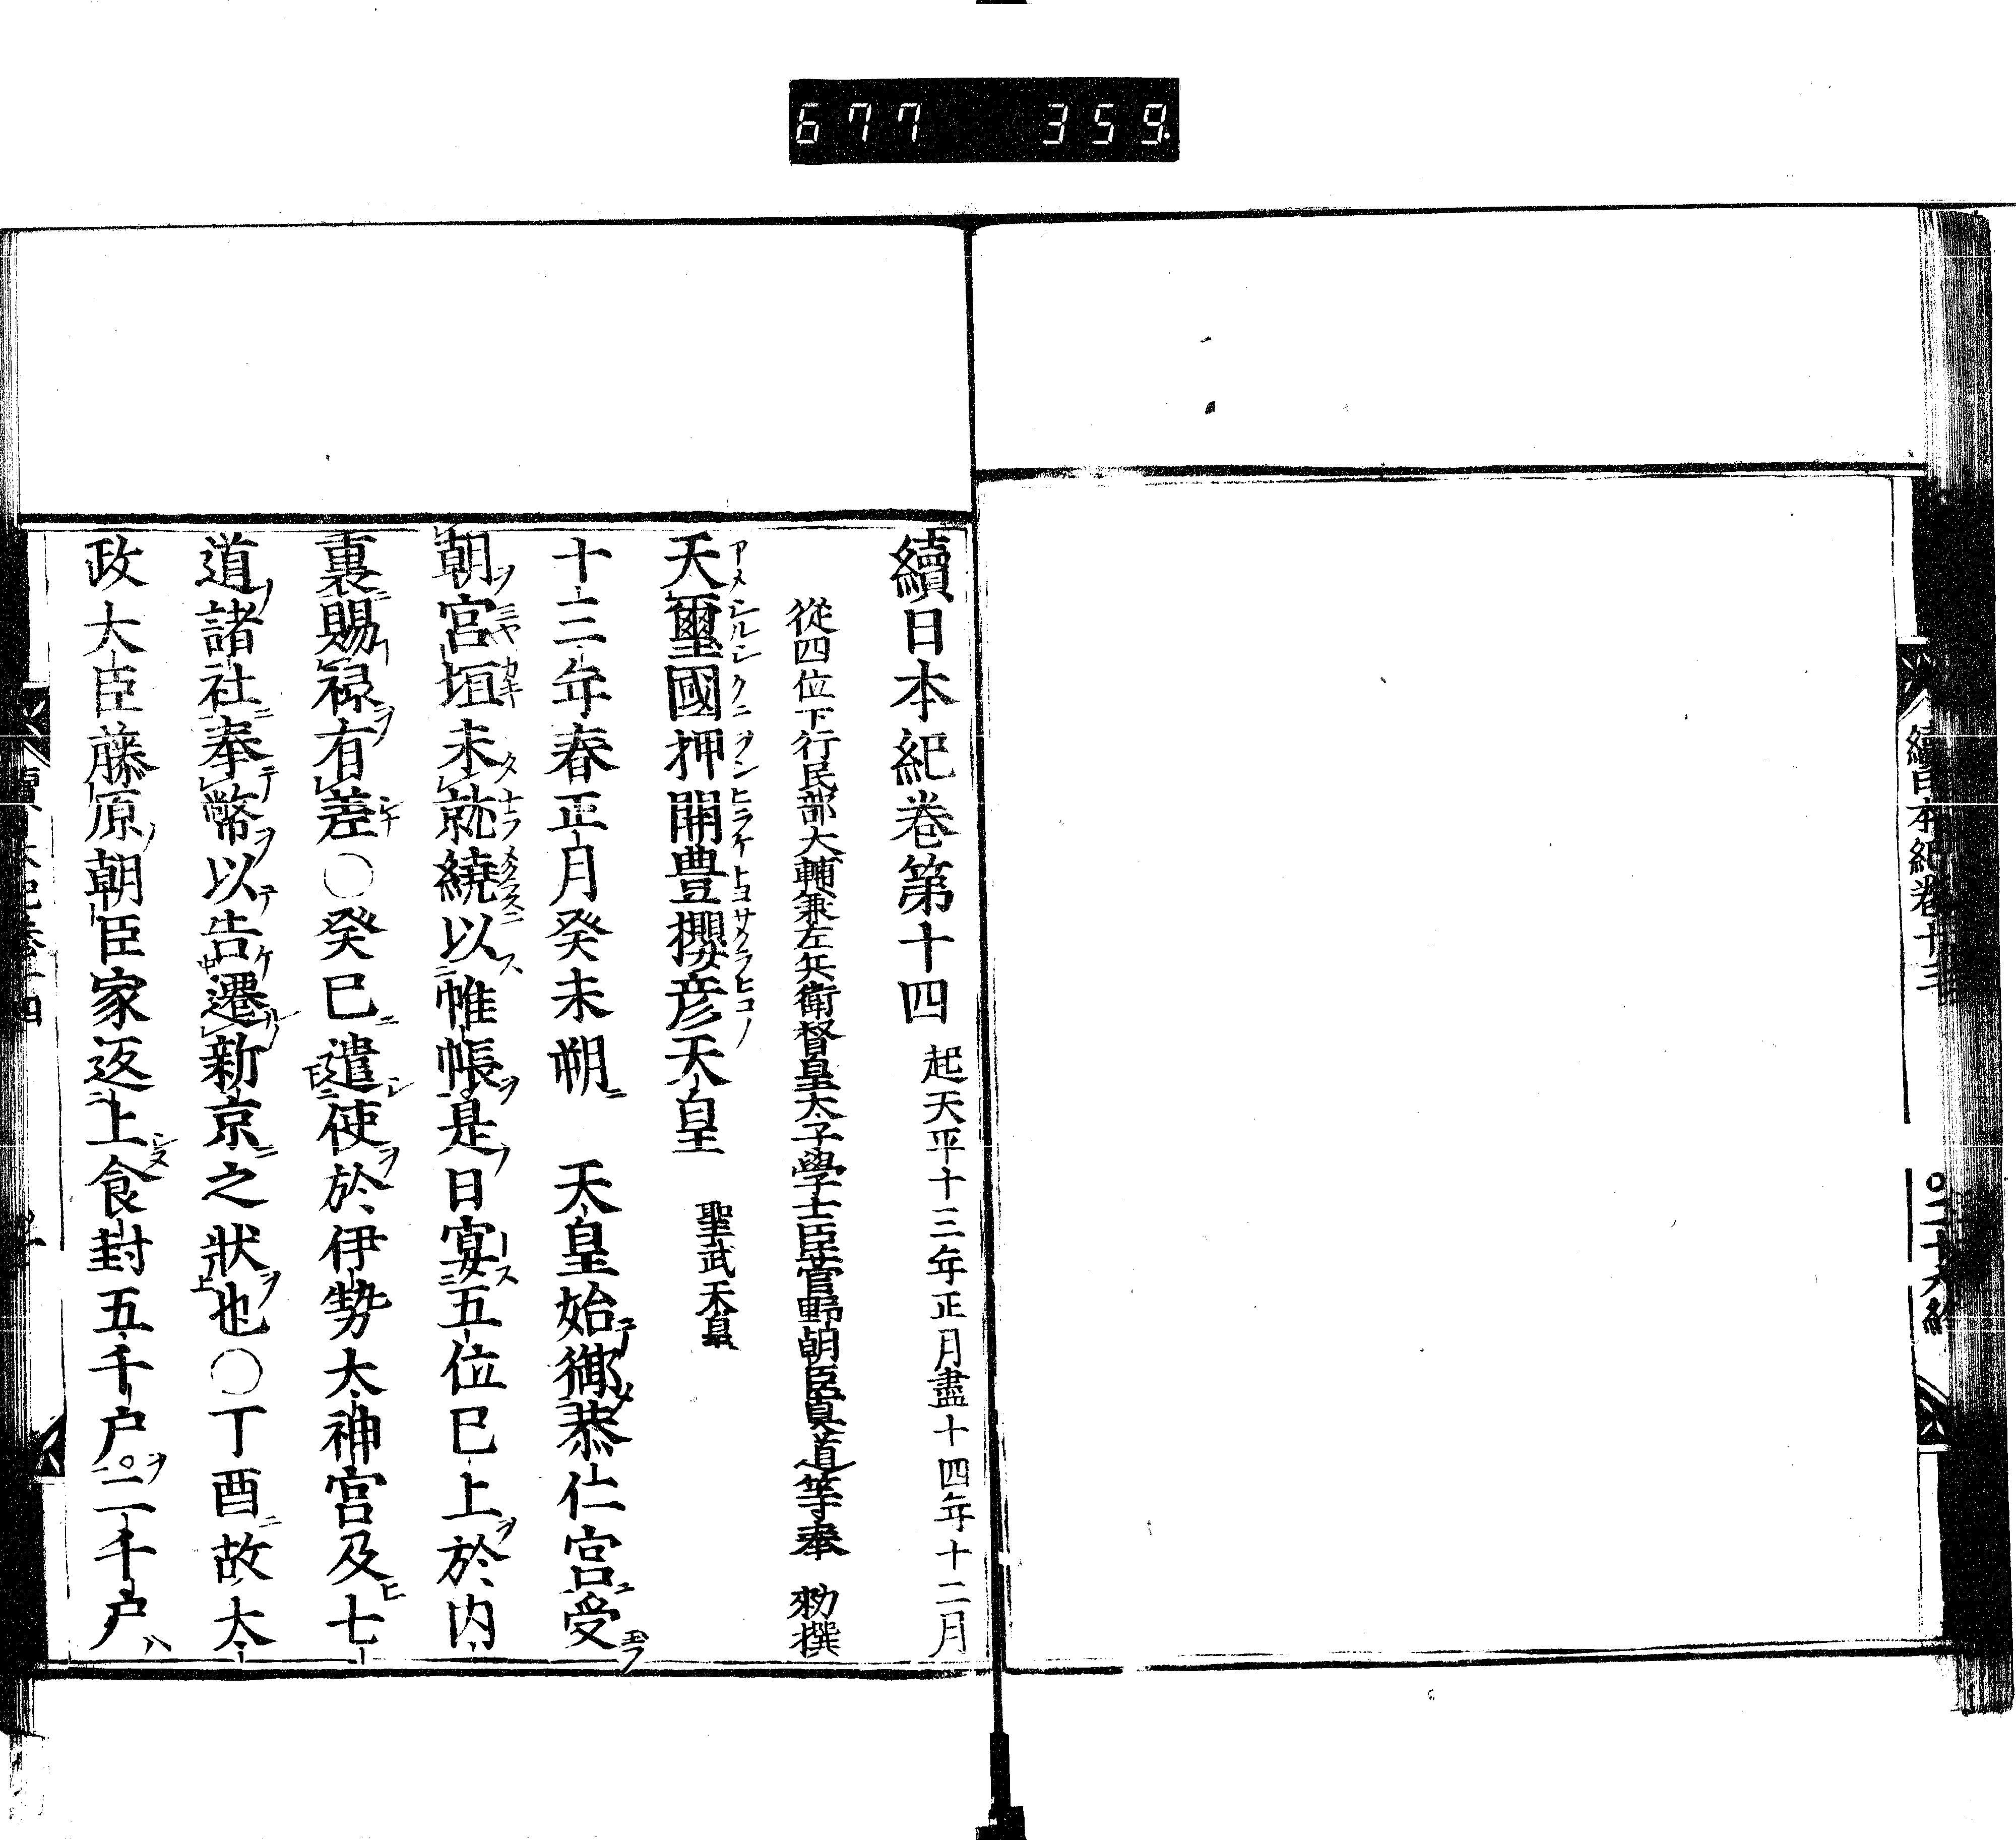 677 359
續日本紀卷十三
續日本紀卷第十四 起天平十三年正月盡十四年十二月
從四位下行民部大輔兼左兵衛督皇太子學士臣菅野朝臣眞道等奉 勅撰
天璽國押開豊櫻彦天皇 聖武天皇
十三年春正月癸未朔 天皇始御恭仁宮受
朝宮垣未就繞以帷帳是日宴五位已上於内
裏賜禄有差○癸巳遣使於伊勢大神宮及七
道諸社奉幣以告遷新京之狀也○丁酉故太
政大臣藤原朝臣家返上食封五千户二千户